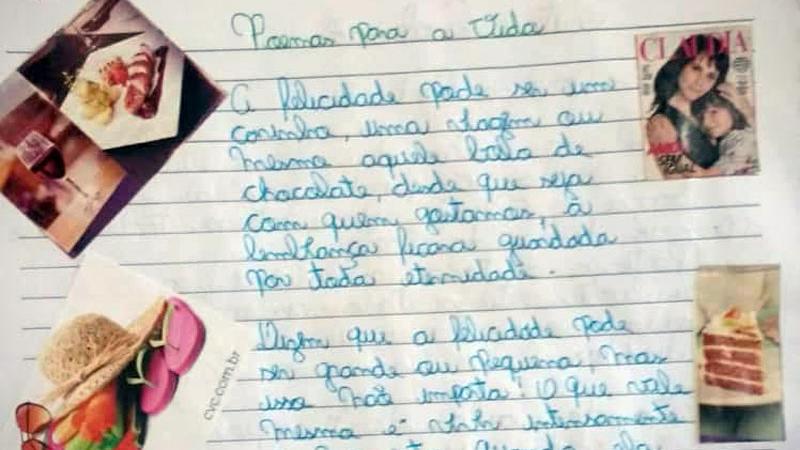 Poemas para a Vida
A felicidade pode ser um
carinho, uma viagem ou
mesmo aquele bolo de
chocolate, desde que seja
com quem gostamos, a
lembrança ficara guardada
por toda eternidade.
Dizem que a felicidade pode
ser grande ou pequena, mas
isso não importa! O que vale
mesmo é viver intensamente
quando ela
CLAUDIA
cvc.com.br